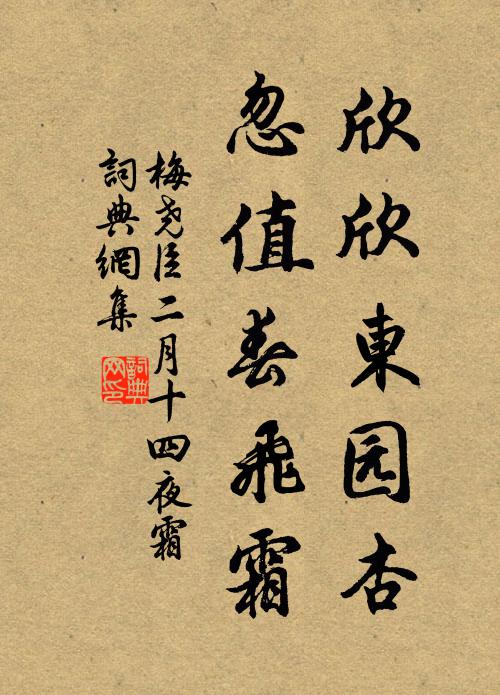 欣欣東园杏
忽值春飛霜
梅尧臣二月十四夜霜
詞典網集
詞典
网印